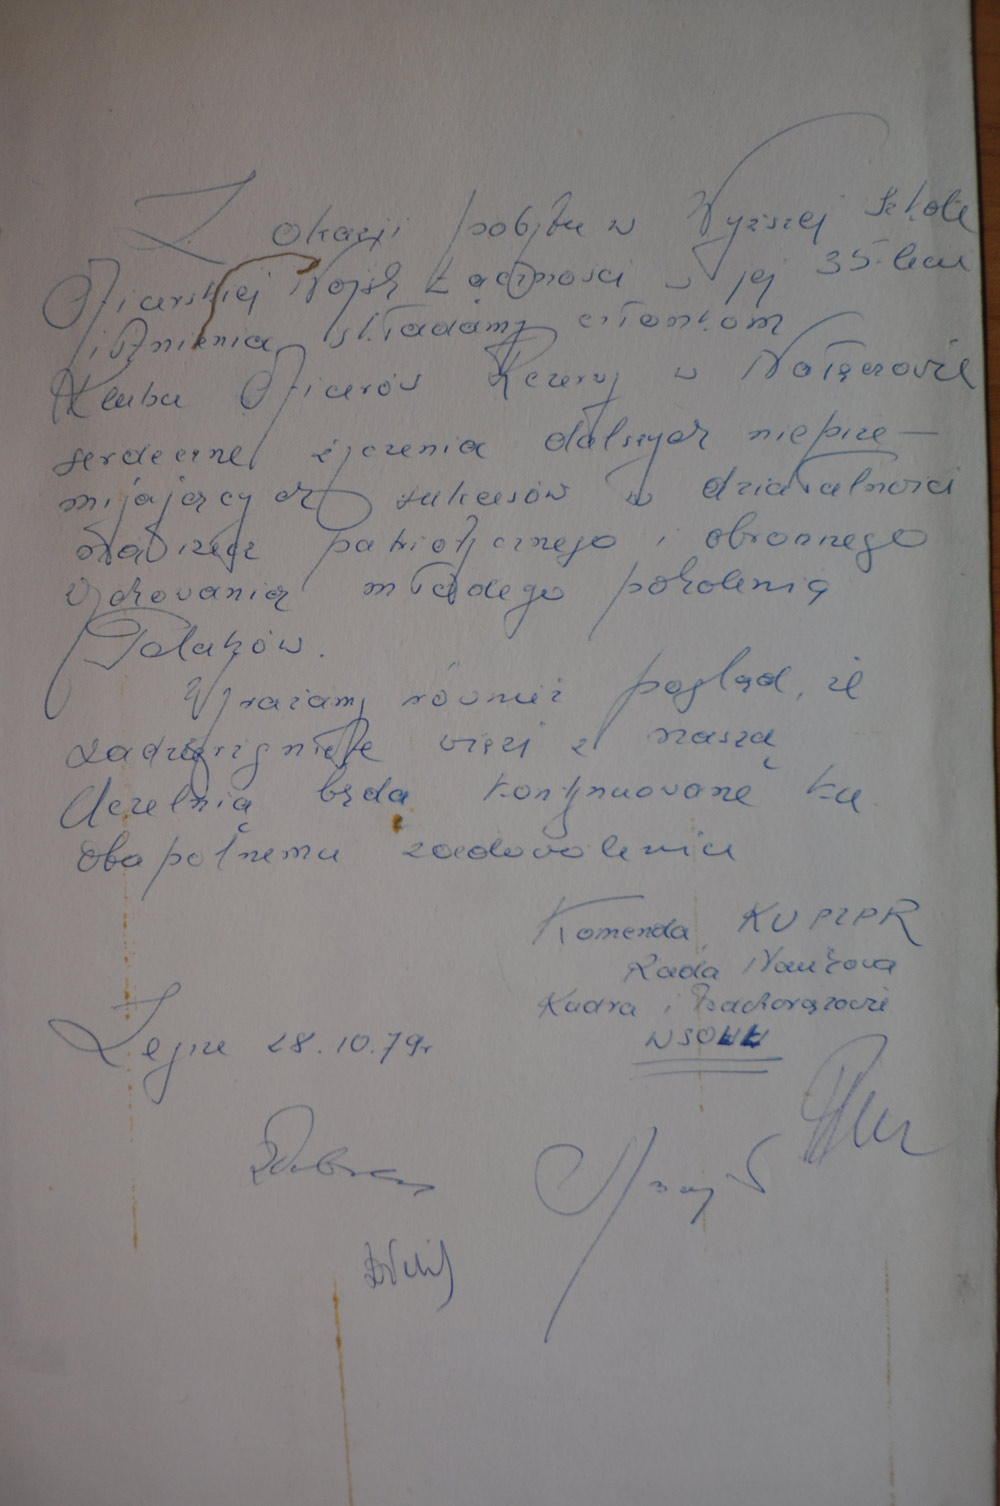 Z okazji pobytu w Wyższej Szkole
Oficerskiej Wojsk Łączności w jej 35-leciu
istnienia składamy członkom
Klubu Oficerów Rezerwy w Nałęczowie
serdeczne życzenia dalszych nieprze-
mijających sukcesów w działalności
na rzecz patriotycznego i obronnego
wychowania młodego pokolenia
Polaków.
Wyrażamy również pogląd, że
zadzierzgnięte więzi z naszą
Uczelnią będą kontynuowane ku
obapólnemu zadowoleniu
Komenda, KU PZPR
Rada Naukowa
Kadra i Podchorążowie
WSOWŁ
Zegrze 28.10.79r